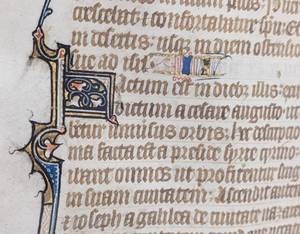 crescebat ⁊ confortabatur spu ⁊ e
in desertis. usq; in diem ostensio
sue ad isrl
Factum est in dieb; illis: e
dictum a cesare augusto ut
betur uniusus orbis. hec descriptio
ma facta est a preside syrie cyrino.
ibant omnes ut profiterent sing
in suam ciuitatem. Ascendit autem
⁊ ioseph a galilea de ciuitate na